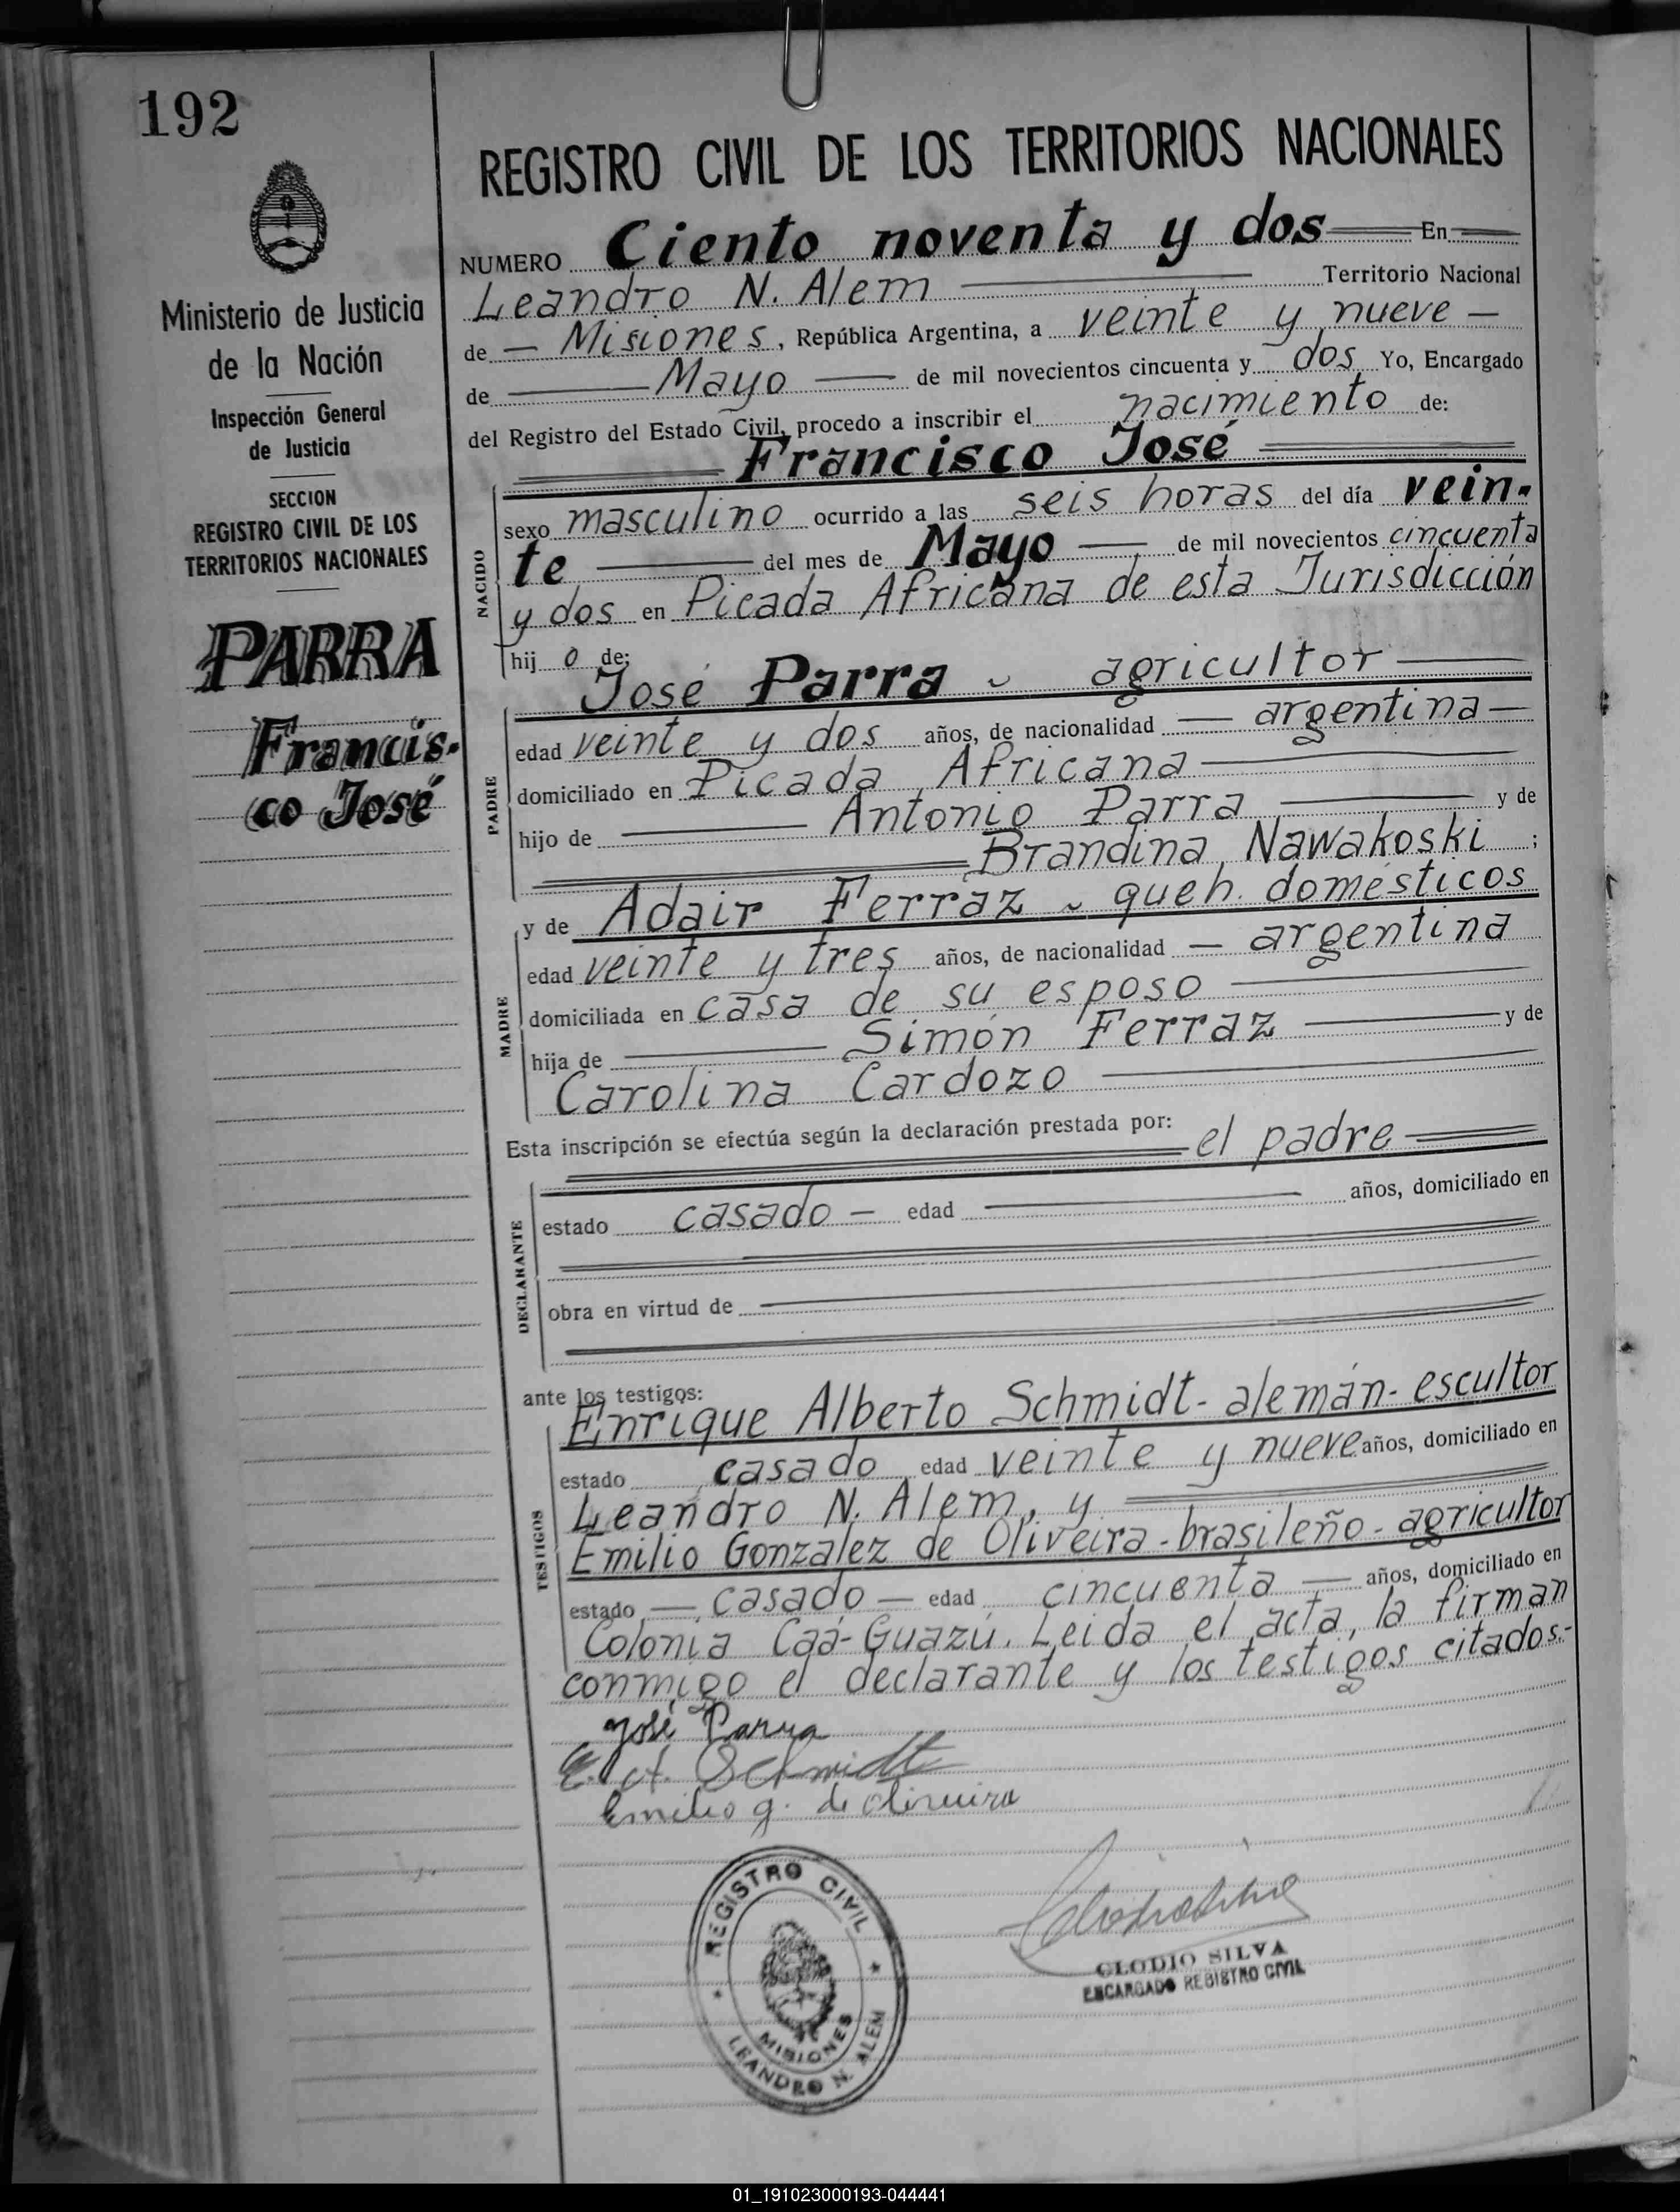 192
Ministerio de Justicia
de la Nación
Inspección General
de Justicia
SECCION
REGISTRO CIVIL DE LOS
TERRITORIOS NACIONALES
PARRA
Francis-
co José
REGISTRO CIVIL DE LOS TERRITORIOS NACIONALES
NUMERO Ciento noventa y dos En
Leandro N. Alem Territorio Nacional
de Misiones, República Argentina, a veinte y nueve
de Mayo de mil novecientos cincuenta y dos Yo, Encargado
del Registro del Estado Civil, procedo a inscribir el nacimiento de:
Francisco José
NACIDO
sexo masculino ocurrido a las seis horas del día vein-
te del mes de Mayo de mil novecientos cincuenta
y dos en Picada Africana de esta Jurisdicción
hij o de:
José Parra - agricultor
PADRE
edad veinte y dos años, de nacionalidad argentina
domiciliado en Picada Africana
hijo de Antonio Parra y de
Brandina Nawakoski ;
y de Adair Ferraz - queh. domésticos
MADRE
edad veinte y tres años, de nacionalidad argentina
domiciliada en casa de su esposo
hija de Simón Ferraz y de
Carolina Cardozo
Esta inscripción se efectúa según la declaración prestada por: el padre
DECLARANTE
estado casado edad años, domiciliado en
obra en virtud de
ante los testigos:
Enrique Alberto Schmidt - alemán - escultor
TESTIGOS
estado casado edad veinte y nueve años, domiciliado en
Leandro N. Alem, y
Emilio Gonzalez de Oliveira - brasileño - agricultor
estado casado edad cincuenta años, domiciliado en
Colonia Caá-Guazú. Leida el acta, la firman
conmigo el declarante y los testigos citados.-
José Parra
E. A. Schmidt
Emilio g. de oliveira
REGISTRO CIVIL
MISIONES
LEANDRO N. ALEM
Clodio Silva
CLODIO SILVA
ENCARGADO REGISTRO CIVIL
01_191023000193-044441